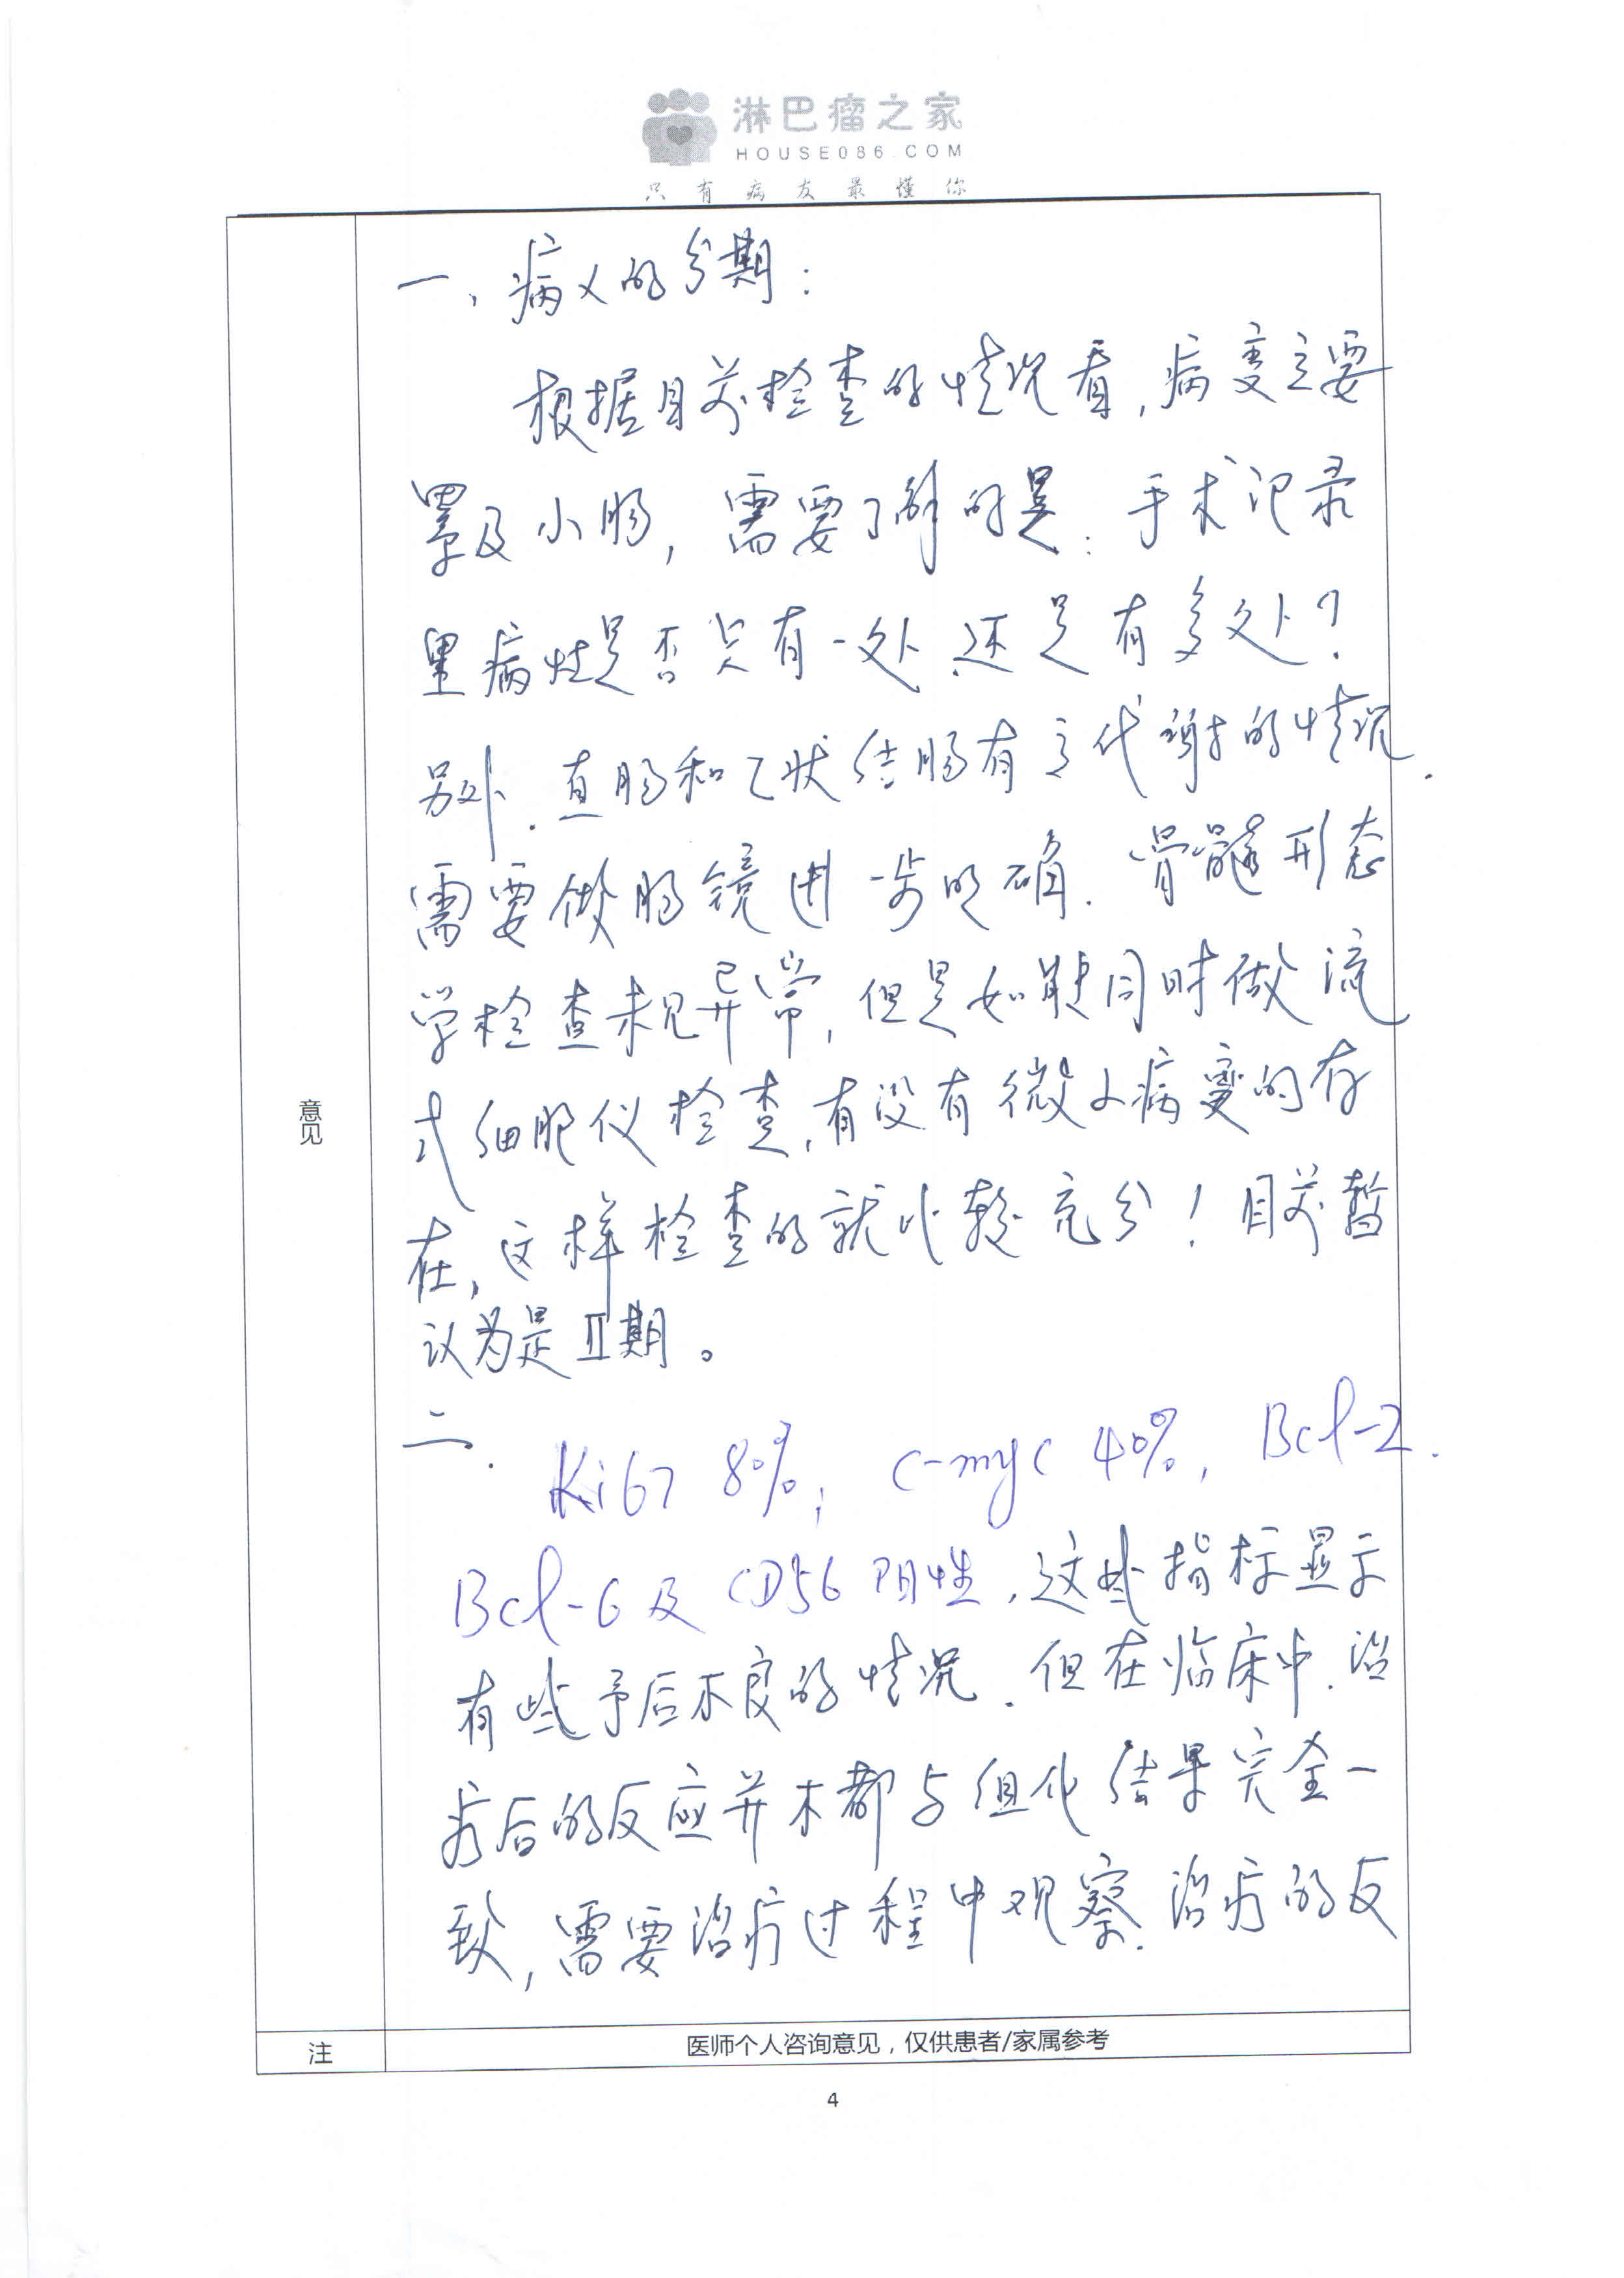 淋巴瘤之家
HOUSE086.COM
只有病友最懂你
一、病人的分期：
根据目前检查的情况看，病变主要
累及小肠，需要了解的是：手术记录
里病灶是否只有一处还是有多处？
另外．直肠和乙状结肠有高代谢的情况．
需要做肠镜进一步明确．骨髓形态
学检查未见异常，但是如能同时做流
式细胞仪检查，有没有微小病变的存
在，这样检查的就比较充分！目前暂
认为是Ⅱ期。
二．
Ki67 80%，C-myc 40%，Bcl-2．
Bcl-6及CD56阳性．这些指标显示
有些予后不良的情况．但在临床中．治
疗后的反应并不都与组化结果完全一
致，需要治疗过程中观察．治疗的反
意见
注
医师个人咨询意见，仅供患者/家属参考
4